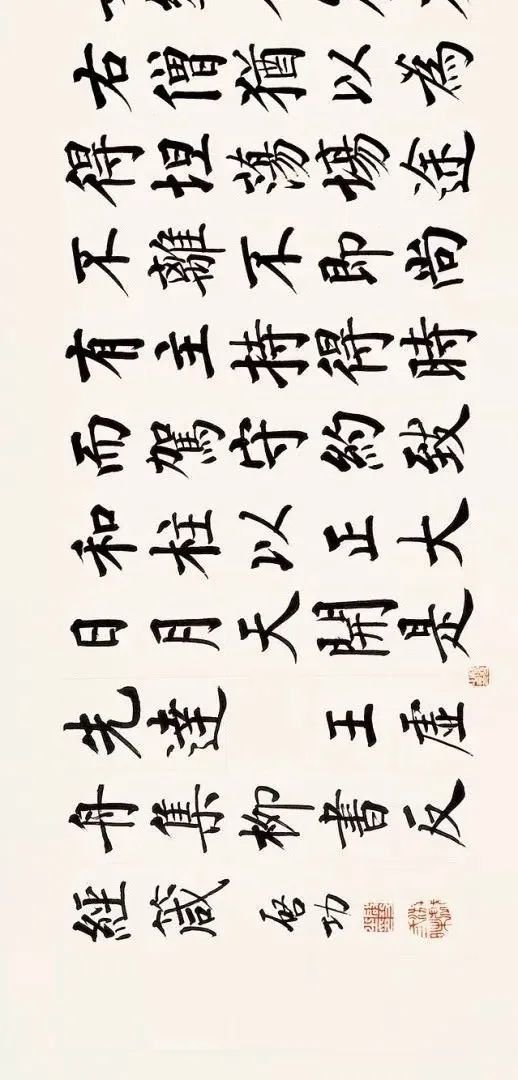 右僧猶以為
得坦蕩場途
不離不即尚
有主持得時
而駕守約致
和柱以正大
日月天開是
先達 王虚
舟集柳書反
經箴 启功